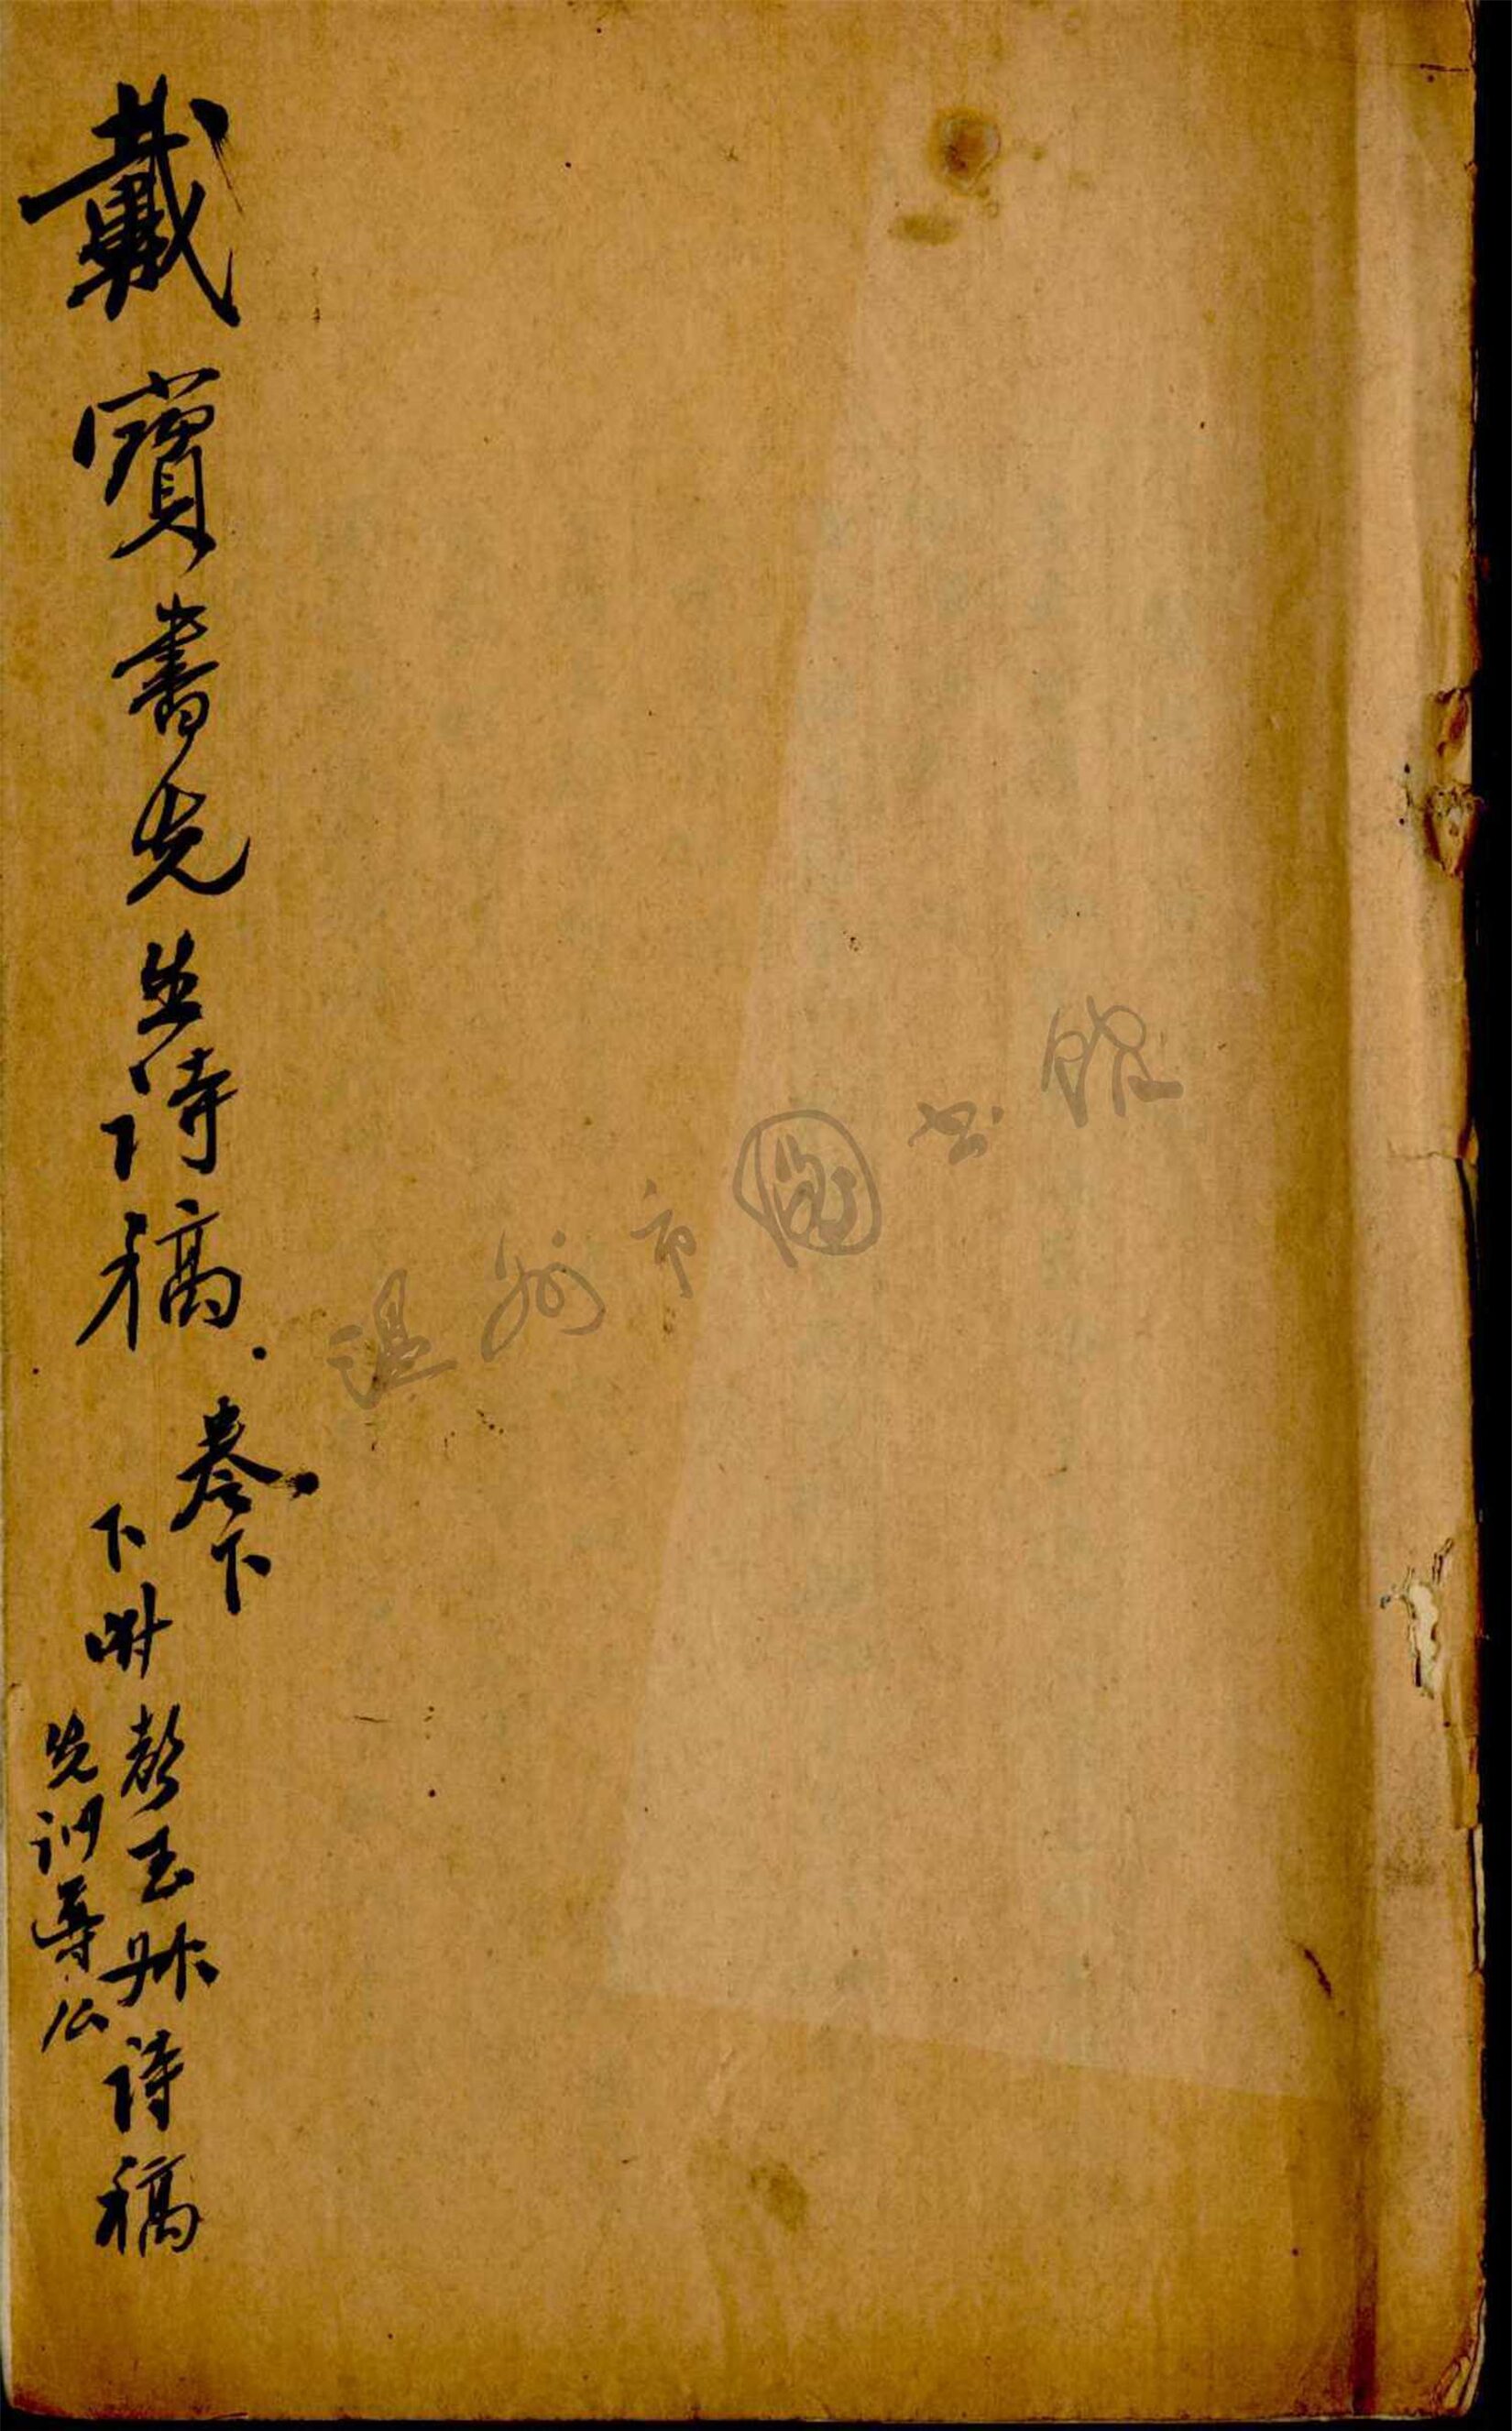 戴寶書先生詩稿
卷下
下附彭玉詩稿
先訓導公
温州市圖书馆